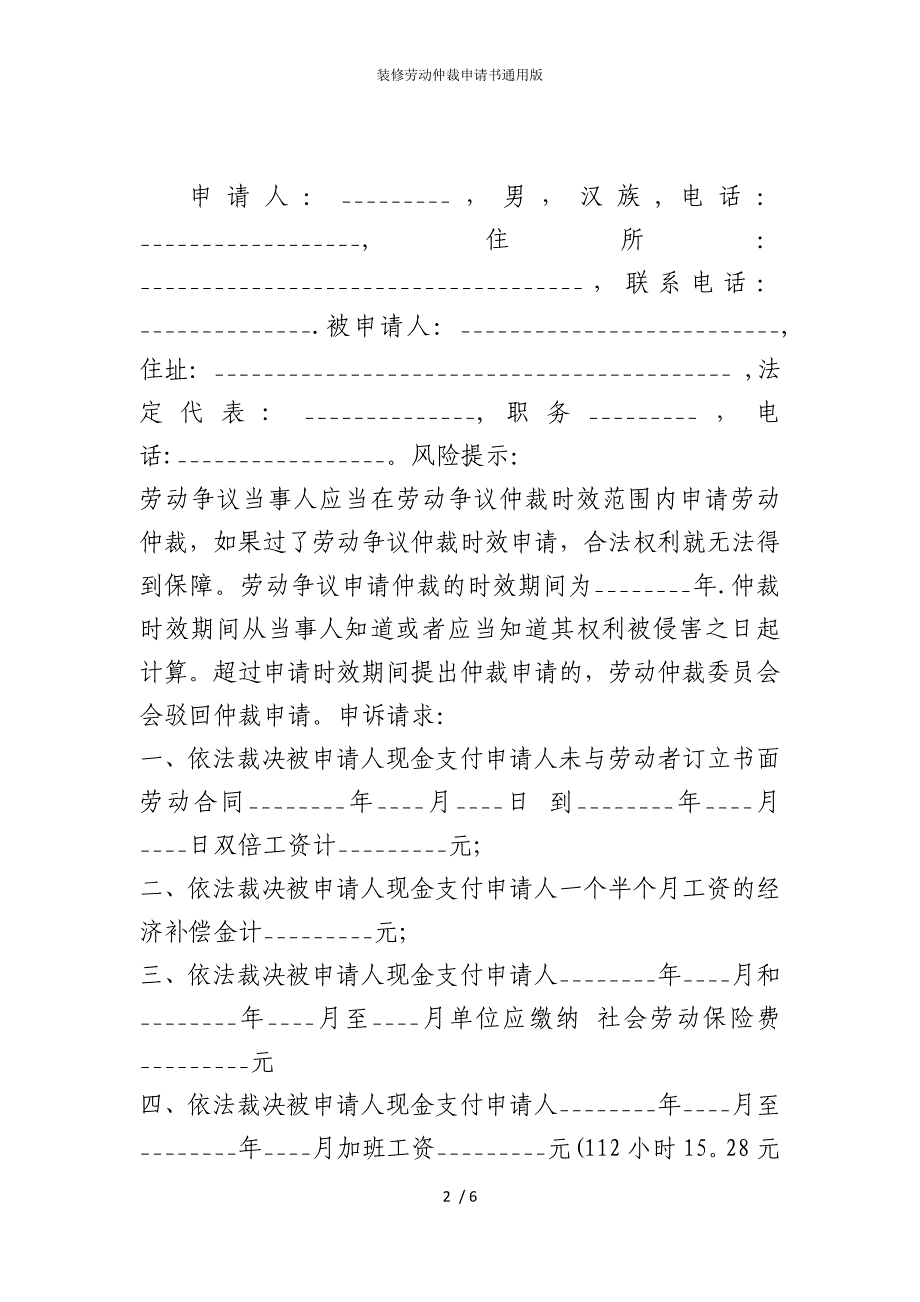 装修劳动仲裁申请书通用版
申请人: _________, 男, 汉族, 电话:
__________________, 住所:
____________________________________, 联系电话:
______________. 被申请人: __________________________,
住址: __________________________________________, 法
定代表: ______________, 职务_________, 电
话: _________________。风险提示:
劳动争议当事人应当在劳动争议仲裁时效范围内申请劳动
仲裁, 如果过了劳动争议仲裁时效申请, 合法权利就无法得
到保障。劳动争议申请仲裁的时效期间为________年. 仲裁
时效期间从当事人知道或者应当知道其权利被侵害之日起
计算。超过申请时效期间提出仲裁申请的, 劳动仲裁委员会
会驳回仲裁申请。申诉请求:
一、依法裁决被申请人现金支付申请人未与劳动者订立书面
劳动合同________年____月____日 到________年____月
____日双倍工资计_________元;
二、依法裁决被申请人现金支付申请人一个半个月工资的经
济补偿金计_________元;
三、依法裁决被申请人现金支付申请人________年____月和
________年____月至____月单位应缴纳 社会劳动保险费
_________元
四、依法裁决被申请人现金支付申请人________年____月至
________年____月加班工资_________元(112 小时 15。28 元
2 / 6